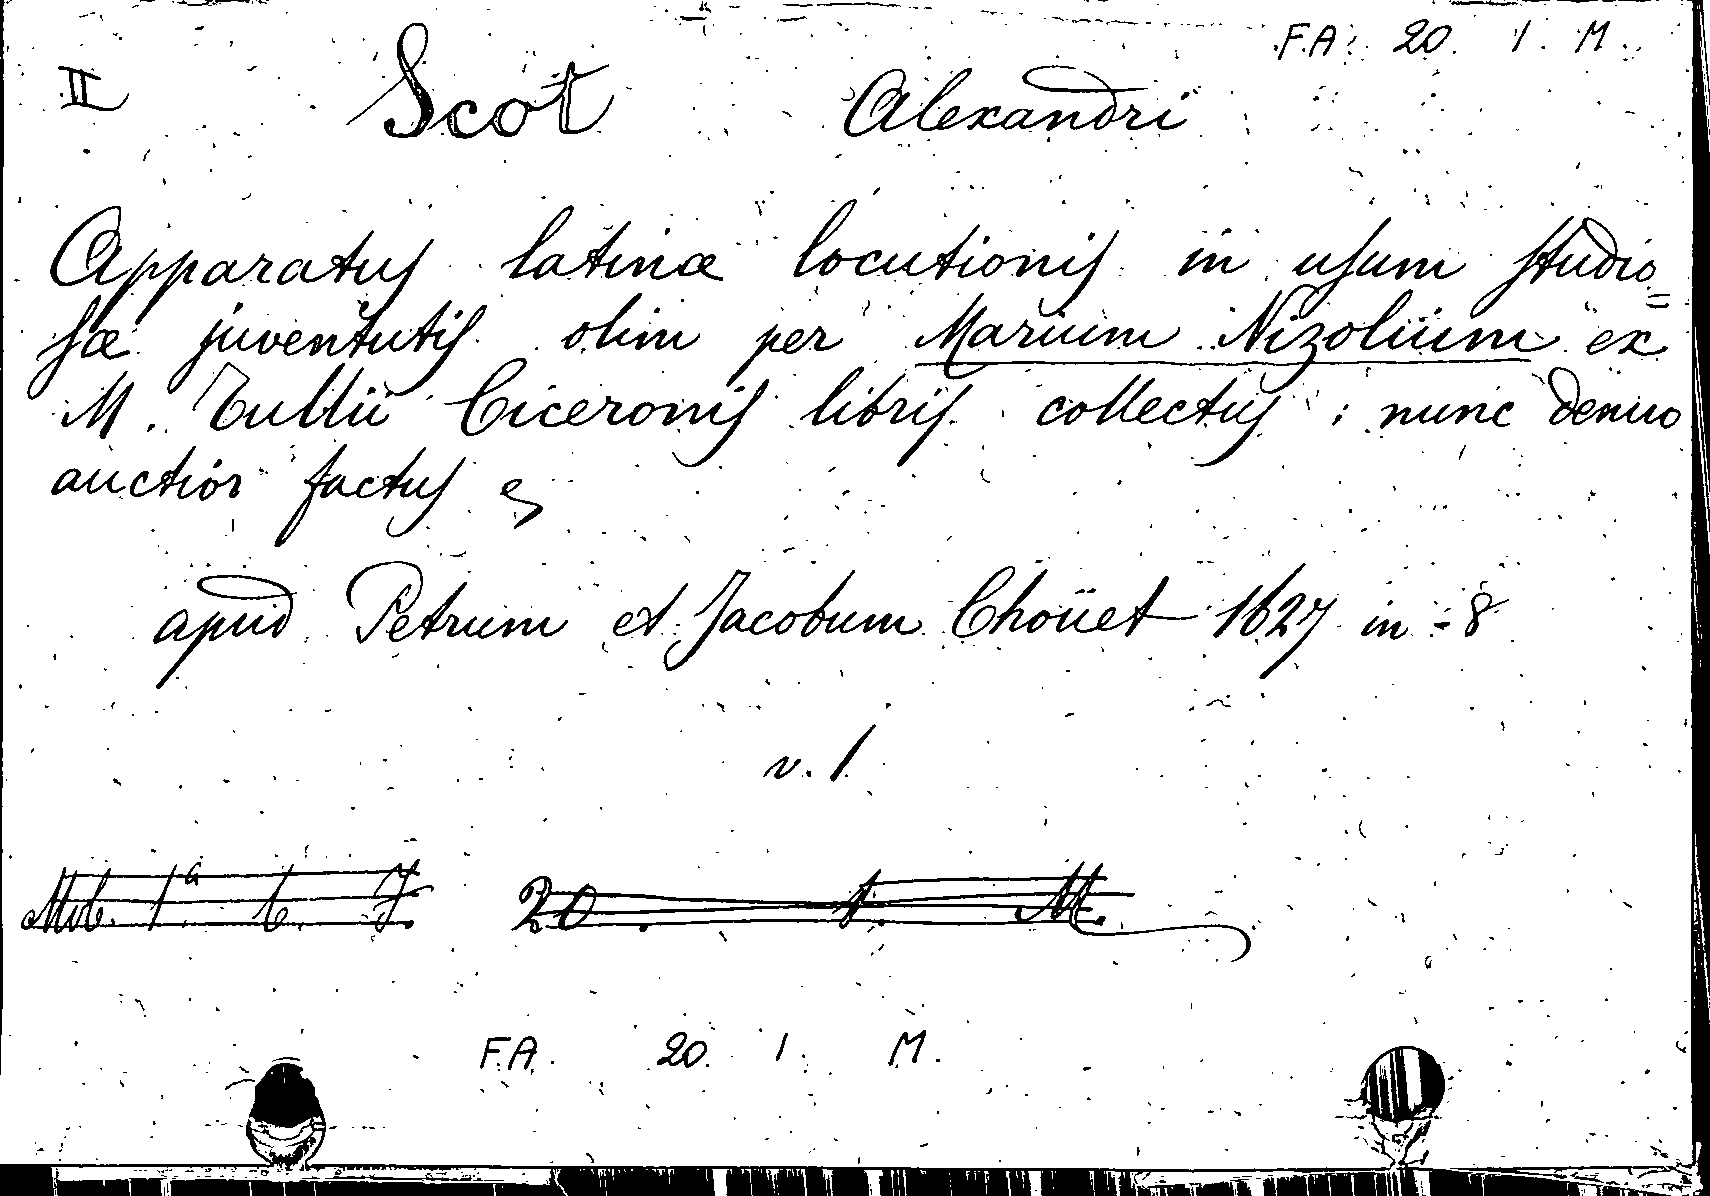 F.A. 20. 1. M.
II Scot Alexandri
Apparatus latinæ locutionis in usum studio=
sæ juventutis olim per Marium Nizolium ex
M. Tullii Ciceronis libris collectus : nunc denuo
auctior factus &
apud Petrum et Jacobum Choüet 1627 in-8
v. 1
20. 1. M.
F.A. 20. 1. M.